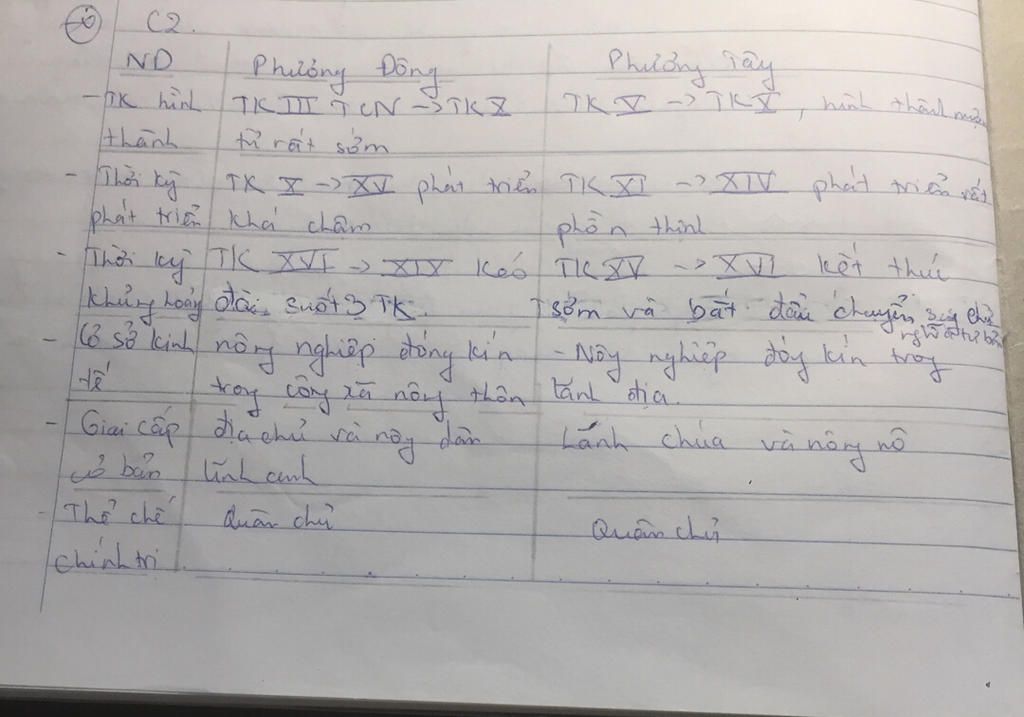 C2.
ND Phương Đông Phương Tây
- TK hình TK III TCN -> TK X TK V -> TK X, hình thành muộn
thành từ rất sớm
- Thời kỳ TK X -> XV phát triển TK XI -> XIV phát triển rất
phát triển khá chậm phồn thịnh
- Thời kỳ TK XVI -> XIX kéo TK XV -> XVI kết thúc
khủng hoảng dài suốt 3 TK. sớm và bắt đầu chuyển sang chủ
nghĩa tư bản
- Cơ sở kinh nông nghiệp đóng kín - Nông nghiệp đóng kín trong
tế trong công xã nông thôn lãnh địa.
- Giai cấp địa chủ và nông dân Lãnh chúa và nông nô
cơ bản lĩnh canh
- Thể chế Quân chủ Quân chủ
chính trị